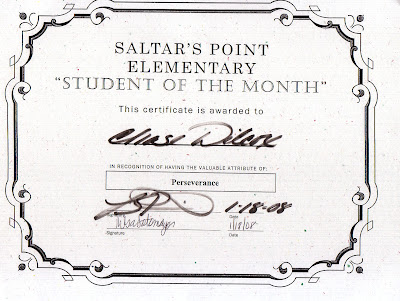 SALTAR'S POINT
ELEMENTARY
"STUDENT OF THE MONTH"
This certificate is awarded to
Chase Wilcox
IN RECOGNITION OF HAVING THE VALUABLE ATTRIBUTE OF:
Perseverance
1-18-08
Date
1/18/08
Signature
Date